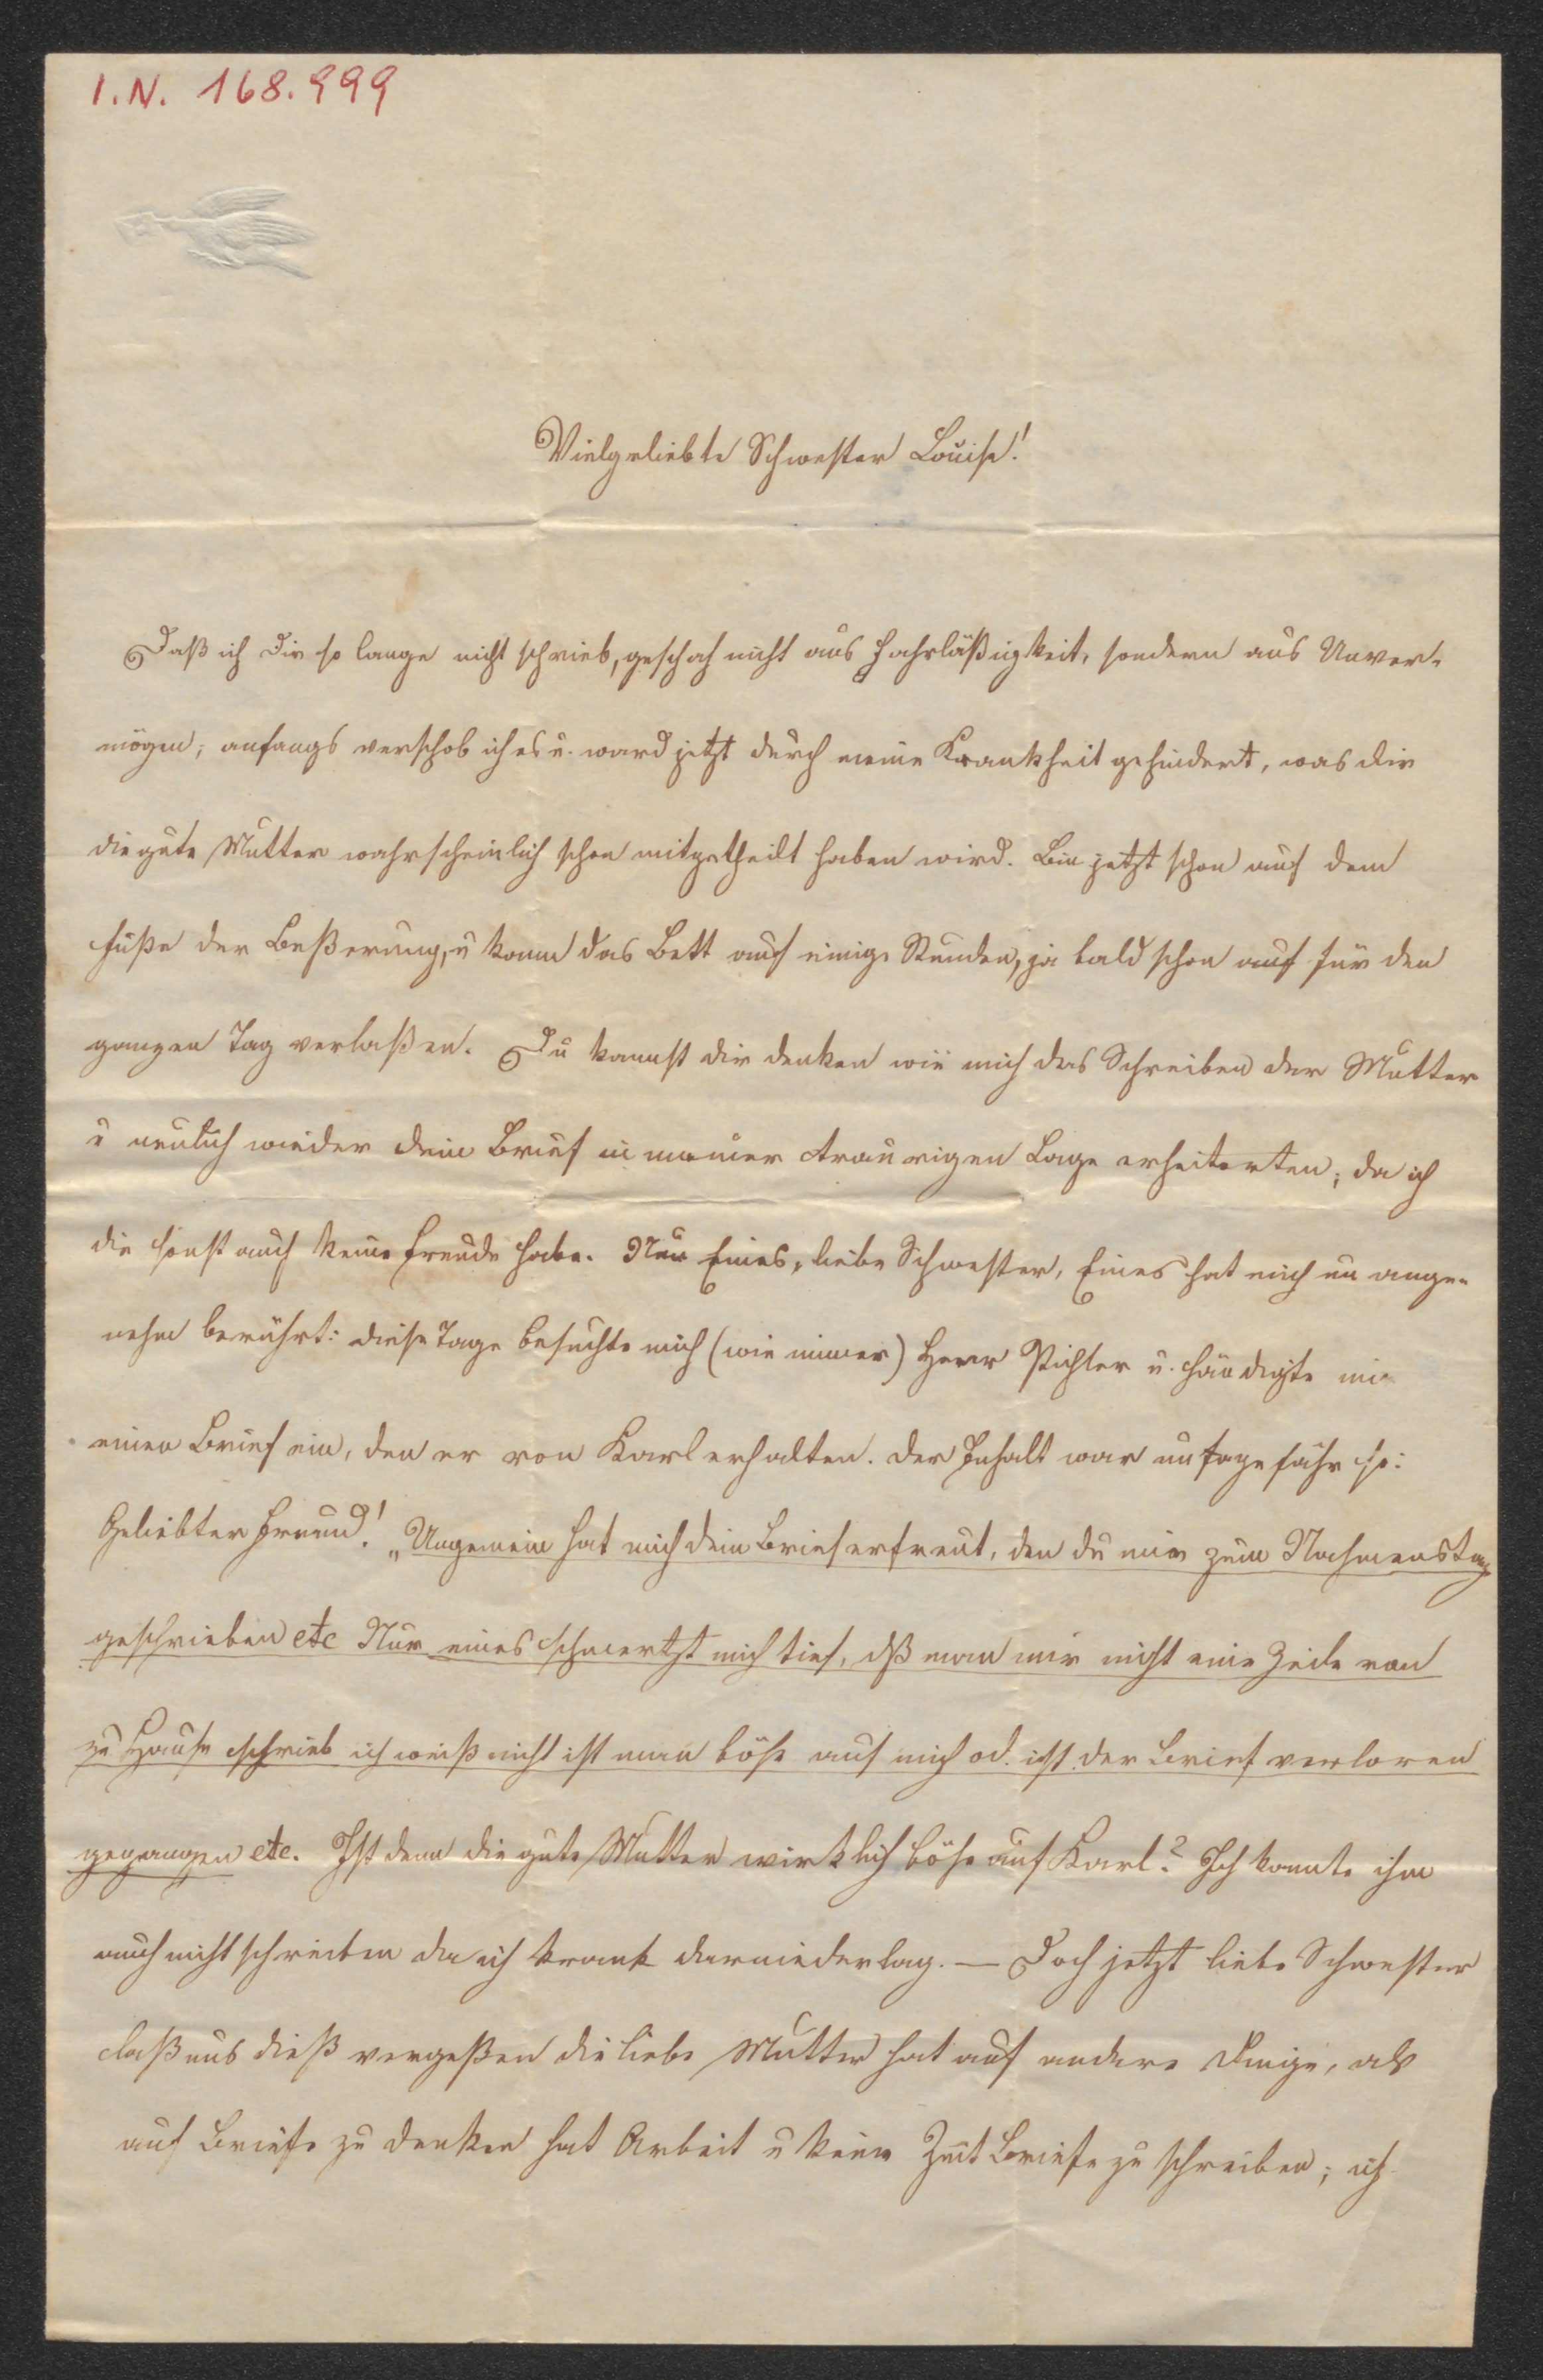 I.N. 168.999
Vielgeliebte Schwester Louise!
Daß ich Dir so lange nicht schrieb, geschah nicht aus Fahrläßigkeit, sondern aus Unver-
mögen; anfangs verschob ich es u. ward jetzt durch meine Krankheit gehindert, was dir
die gute Mutter wahrscheinlich schon mitgetheilt haben wird. Bin jetzt schon auf dem
Fuße der Beßerung, u kann das Bett auf einige Stunden, ja bald schon auf für den
ganzen Tag verlaßen. Du kannst dir denken wie mich das Schreiben der Mutter
u neulich wieder dein Brief in meiner traurigen Lage erheiterten; da ich
die sonst auch keine Freude habe. Nur Eines, liebe Schwester, Eines hat mich un ange-
nehm berührt: diese Tage besuchte mich (wie immer) Herr Pichler u. händigte mir
einen Brief ein, den er von Karl erhalten. Der Inhalt war ungefähr so:
Geliebter Freund! „Ungemein hat mich dein Brief erfreut, den du mir zum Nahmenstag
geschrieben etc Nur eines schmertzt mich tief, dß man mir nicht eine Zeile von
zu Hause schrieb ich weiß nicht ist man böse auf mich od. ist der Brief verloren
gegangen etc. Ist denn die gute Mutter wirklich böse auf Karl? Ich konnte ihm
auch nicht schreiben da ich krank darniederlag. — Doch jetzt liebe Schwester
laß uns dieß vergeßen die liebe Mutter hat auf andere Dinge, als
auf Briefe zu denken hat Arbeit u keine Zeit Briefe zu schreiben; ich